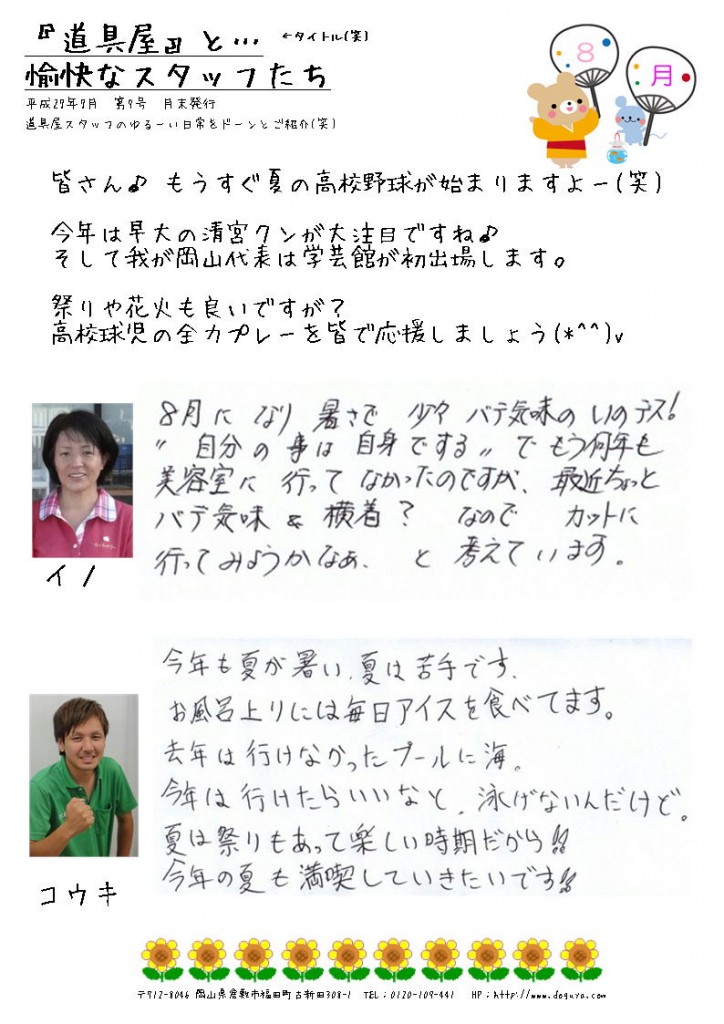 『道具屋』と… ←タイトル(笑)
愉快なスタッフたち
平成29年9月 第9号 月末発行
道具屋スタッフのゆるーい日常をドーンとご紹介(笑)
8月
皆さん♪ もうすぐ夏の高校野球が始まりますよー(笑)
今年は早大の清宮クンが大注目ですね♪
そして我が岡山代表は学芸館が初出場します。
祭りや花火も良いですが?
高校球児の全力プレーを皆で応援しましょう(*^^)v
8月に なり 暑さで 少々 バテ気味の いのデス!
〃自分の事は自身でする〃で もう何年も
美容室に 行って なかったのですが、最近ちょっと
バテ気味 & 横着? なので カットに
行ってみようかなぁ、 と 考えています。
イノ
今年も夏が暑い、夏は苦手です、
お風呂上りには毎日アイスを食べてます。
去年は行けなかったプールに海。
今年は行けたらいいなと、泳げないんだけど。
夏は祭りもあって楽しい時期だから!!
今年の夏も満喫していきたいです!!
コウキ
〒712-8046 岡山県倉敷市福田町古新田308-1 TEL:0120-109-441 HP:http://www.doguya.com